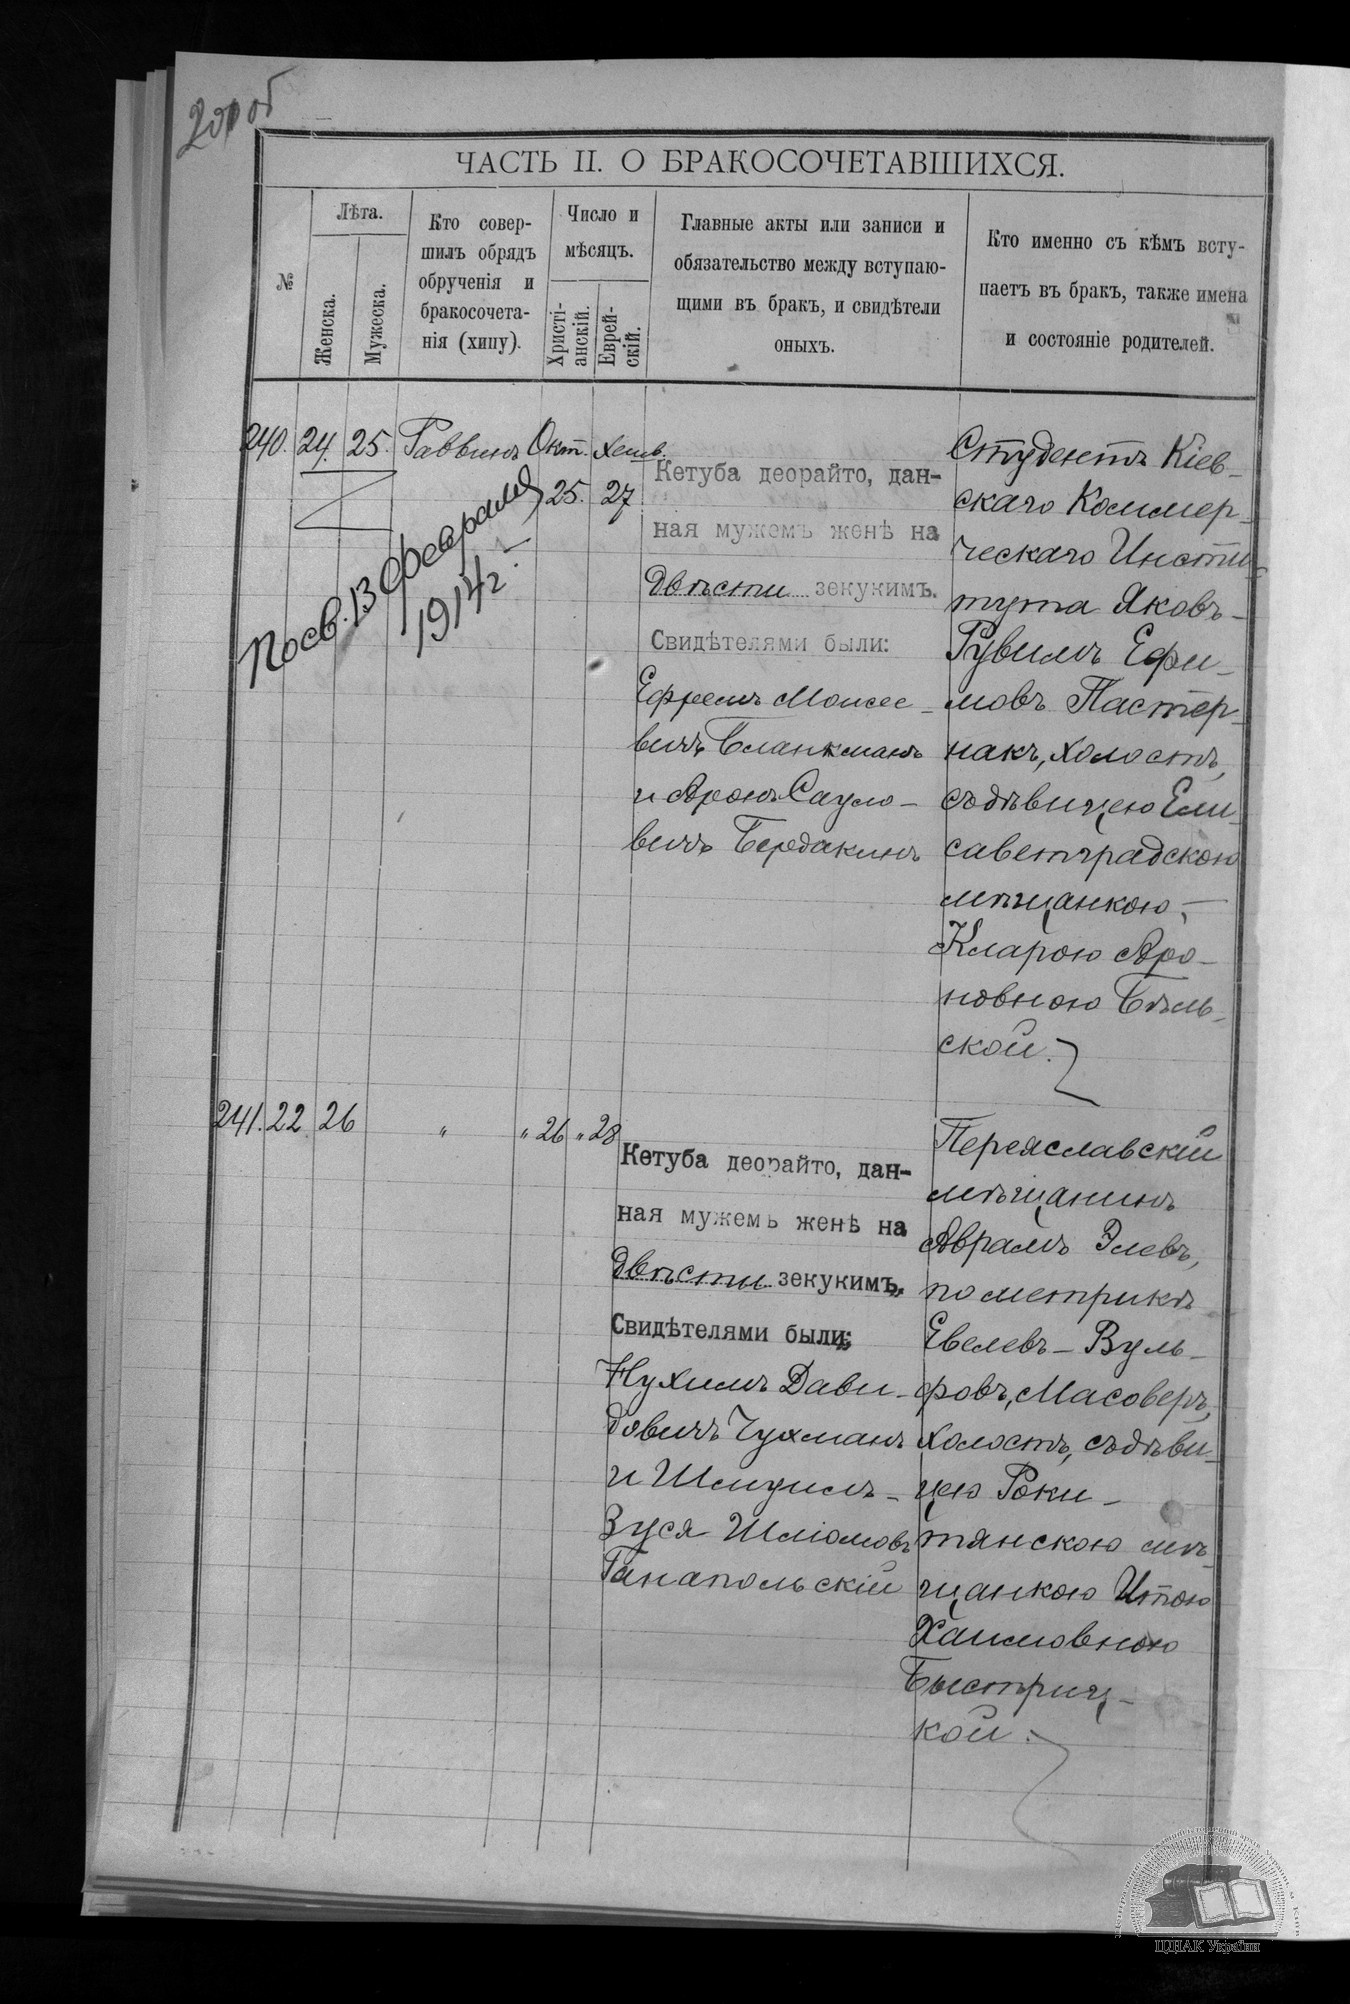 ЧАСТЬ II. О БРАКОСОЧЕТАВШИХСЯ.
№
Лѣта.
Женска.
Мужеска.
Кто совер-
шилъ обрядъ
обрученія и
бракосочета-
нія (хипу).
Число и
мѣсяцъ.
Христі-
анскій.
Еврей-
скій.
Главные акты или записи и
обязательство между вступаю-
щими въ бракъ, и свидѣтели
оныхъ.
Кто именно съ кѣмъ всту-
паетъ въ бракъ, также имена
и состояніе родителей.
240. 24. 25. Раввинъ Окт. Хешв.
25. 27
Посв. 13 февраля
1914 г.
Кетуба деорайто, дан-
ная мужемъ женѣ на
двѣсти зекукимъ.
Свидѣтелями были:
Ефремъ Моисее-
вичъ Бланкманъ
и Аронъ Сауло-
вичъ Бердакинъ
Студентъ Кіев-
скаго Коммер-
ческаго Инсти-
тута Яковъ-
Рувимъ Ефи-
мовъ Пастер-
накъ, холостъ,
съ дѣвицею Ели-
саветградскою
мѣщанкою,-
Кларою Аро-
новною Бѣль-
ской.
241. 22 26 " " 26 " 28
Кетуба деорайто, дан-
ная мужемъ женѣ на
двѣсти зекукимъ.
Свидѣтелями были:
Нухимъ Дави-
довичъ Чухманъ
и Шмуилъ-
Зуся Шліомовъ
Ганапольскій
Переяславскій
мѣщанинъ
Аврамъ Элевъ,
по метрикѣ
Евелевъ-Вуль-
фовъ, Масоверъ,
холостъ, съ дѣви-
цею Роки-
тянскою мѣ-
щанкою Итою
Хаимовною
Быстриц-
кой.
ЦДІАК України